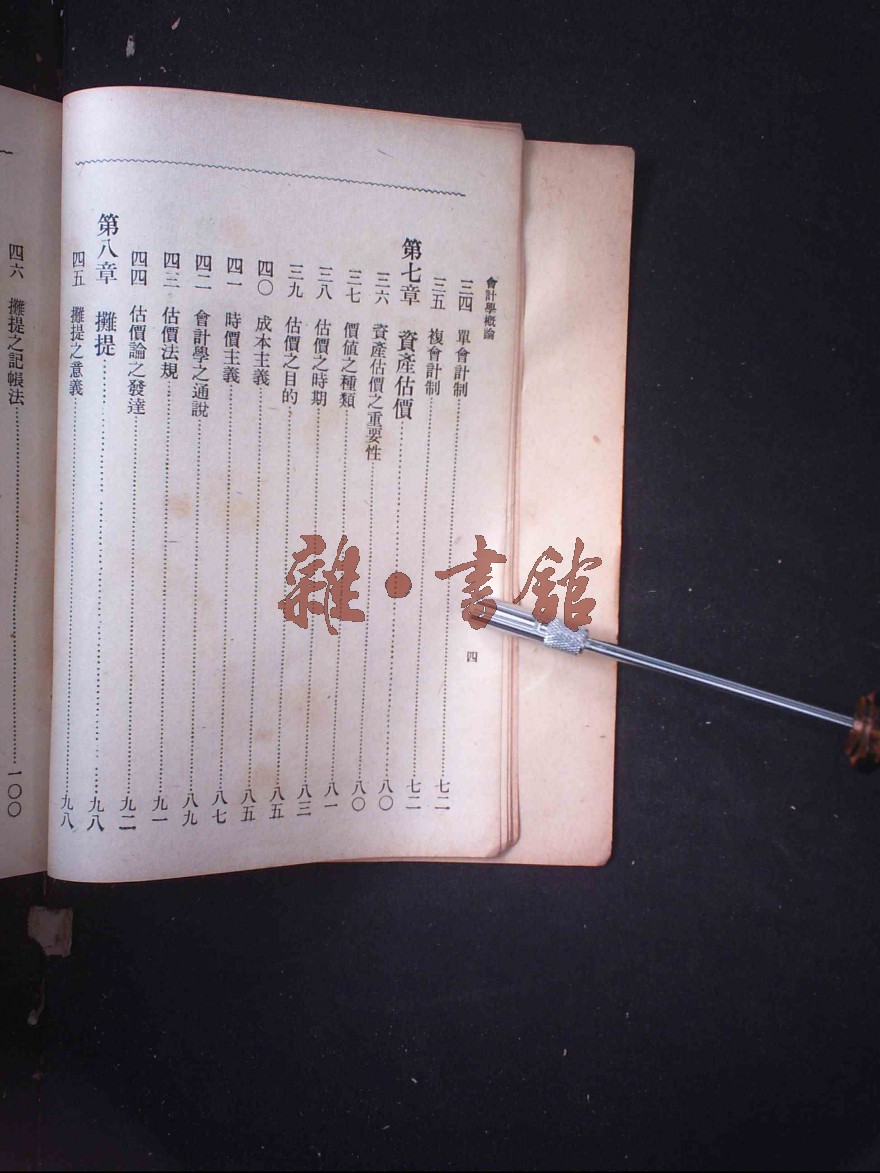 會計學概論
四
三四 單會計制……七二
三五 複會計制……七二
第七章 資產估價……八〇
三六 資產估價之重要性……八〇
三七 價值之種類……八一
三八 估價之時期……八三
三九 估價之目的……八五
四〇 成本主義……八五
四一 時價主義……八七
四二 會計學之通說……八九
四三 估價法規……九一
四四 估價論之發達……九二
第八章 攤提……九八
四五 攤提之意義……九八
四六 攤提之記帳法……一〇〇
雜·書館